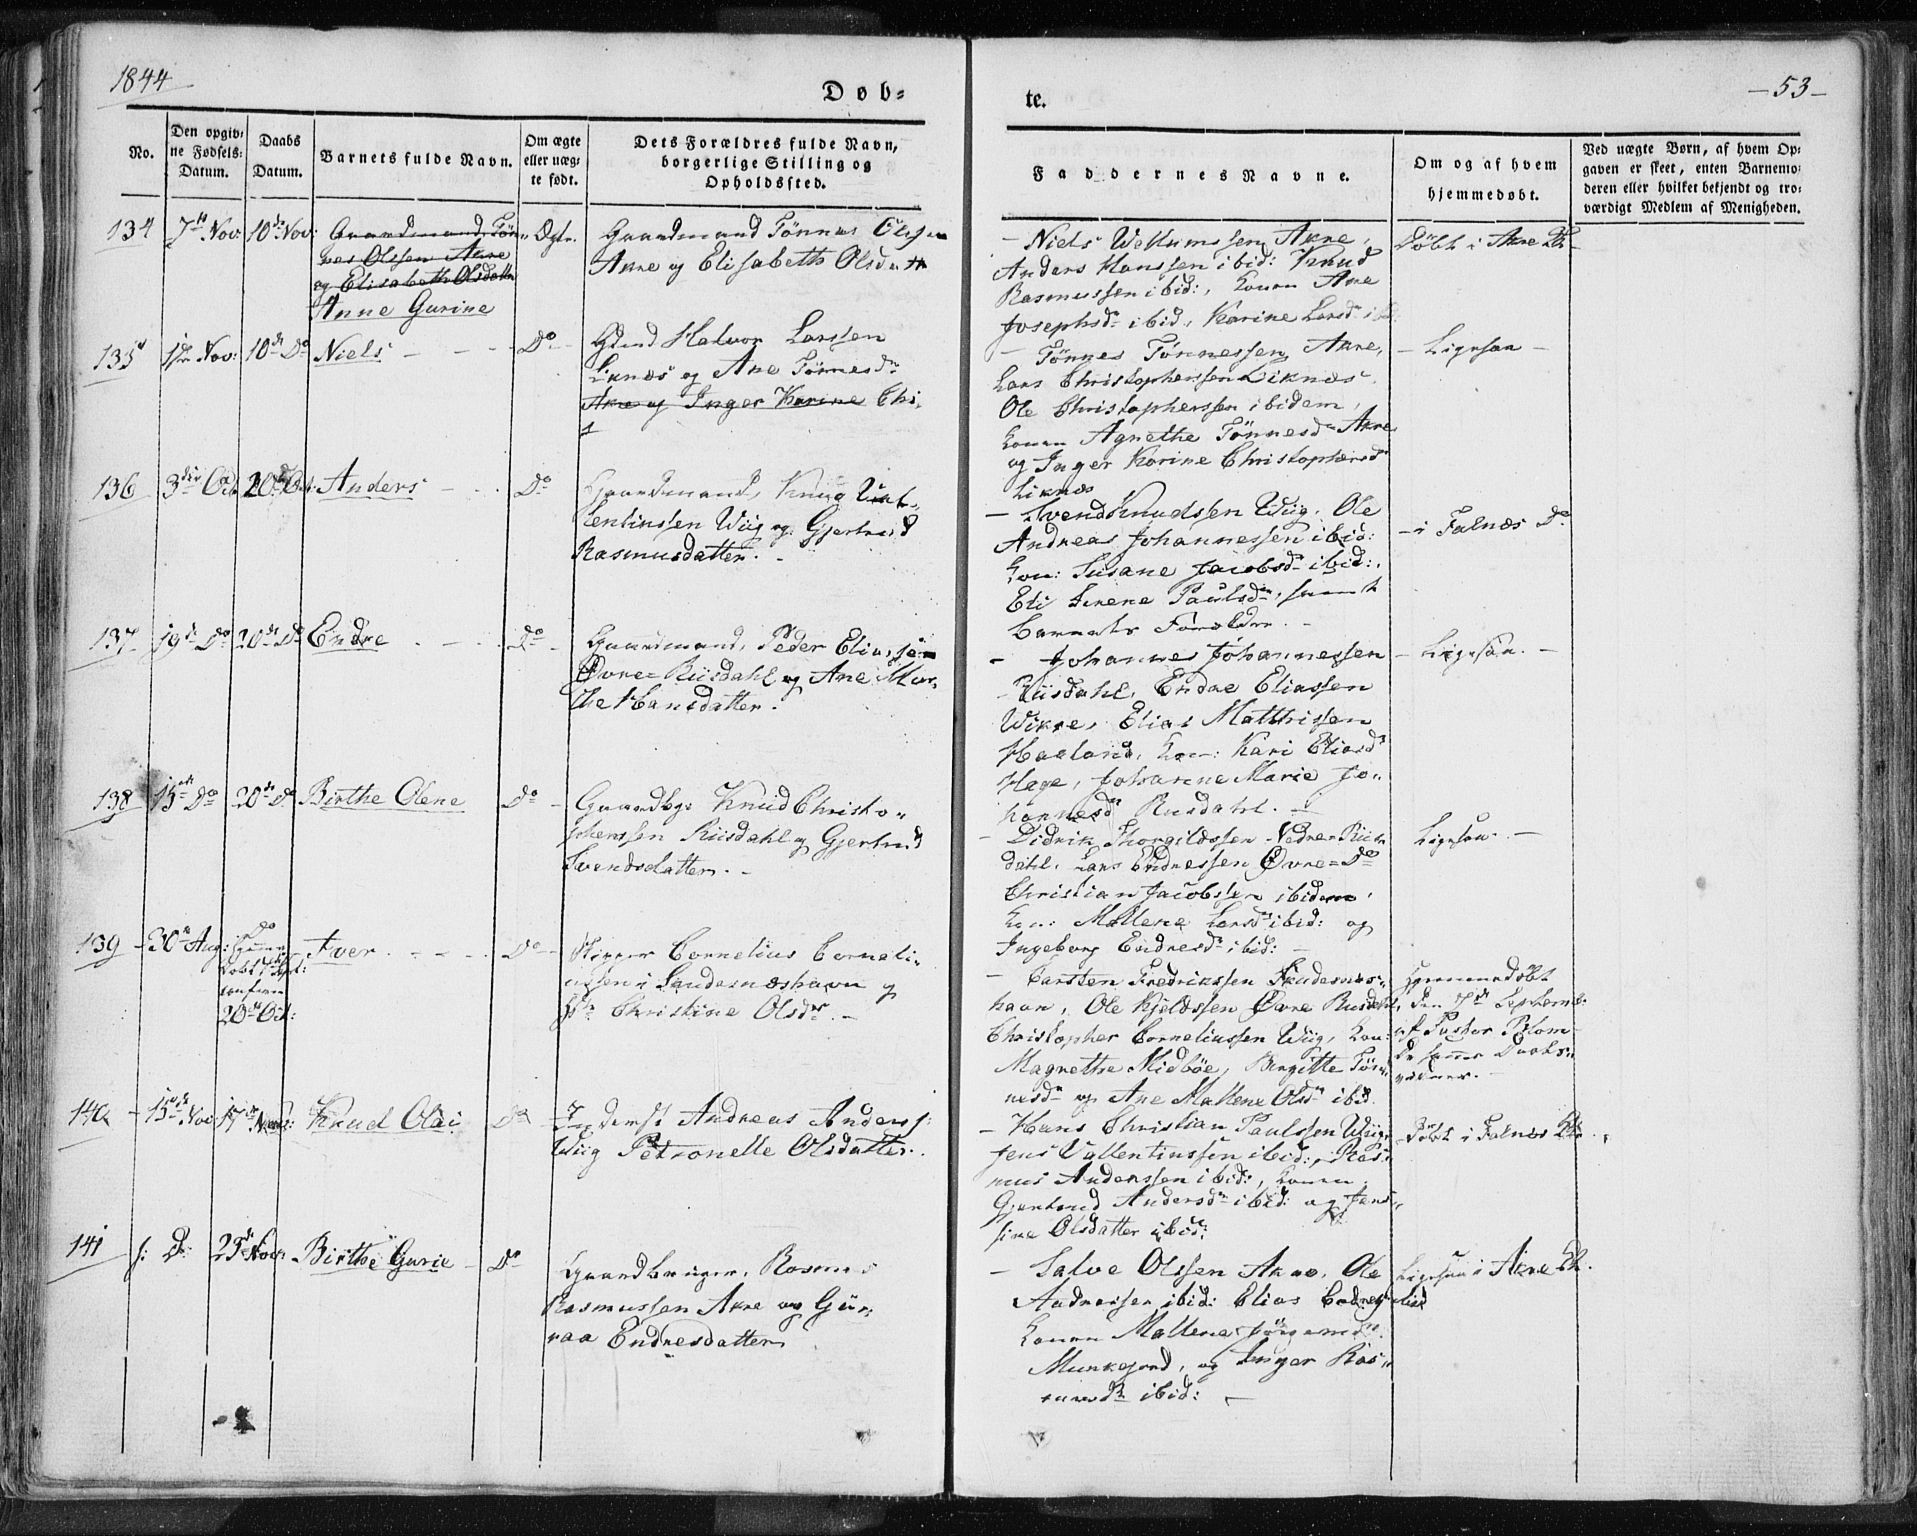 1844
Døb-
te.
-53-
No.
Den opgiv-
ne Fødsels-
Datum.
Daabs
Datum.
Barnets fulde Navn.
Om ægte
eller uæg-
te født.
Dets Forældres fulde Navn,
borgerlige Stilling og
Opholdssted.
Faddernes Navne.
Om og af hvem
hjemmedøbt.
Ved uægte Børn, af hvem Op-
gaven er skeet, enten Barnemo-
deren eller hvilket bekjendt og tro-
værdigt Medlem af Menigheden.
134
7de Nov:
10de Nov:
Gaardmand Tøn-
nes Olssen Akre
og Elisabeth Olsdatter
Anne Gurine
Ægte.
Gaardmand Tønnes Olssen
Akre og Elisabeth Olsdatter
- Niels Akre,
Anders Hanssen ibid: Knud
Rasmussen ibid:, Konen Ane
Josephsdr ibid, Karine Larsdr ibd:
Døbt i Akre K.
135
1ste Nov:
10de Do
Niels - - -
Do -
Halvor Larssen
Liknæs og Ane Tønnesdr
Akre og Inger Karine Chi-
- Tønnes Tønnessen Akre,
Lars Christophersen Liknæs.
Ole Christopherssen ibidem,
Konen Agnethe Tønnesdr Akre
og Inger Karine Christophersdr
Liknæs
- Ligesaa -
136
3die Oct.
20de Oct:
Anders - - .
Do
Gaardmand, Knud Val-
lentinssen Wiig og Gjertrud
Rasmusdatter. -
- Svend Knudssen Wiig, Ole
Andreas Johannessen ibid:
Kon: Susane Jacobsdr ibid:,
Eli Serene Paulsdr, samt
Barnets Forældre. -
- i Falnæs Do
137
19de Do
20de Do
Endre . - -
Do -
Gaardmand, Peder Eliassen
Øvre-Riisdahl og Ane Mar-
the Hansdatter.
- Johannes Johannessen
Riisdahl, Endre Eliassen
Wikre, Elias Matthissen
Haaland, Kon: Kari Eliasdr
Hage, Johanne Marie Jo-
hannesdr Riisdahl. -
- Ligesaa. -
138
15de Do
20de Do
Birthe Olene
Do -
Gaardbgr Knud Christo-
pherssen Riisdahl og Gjertrud
Svendsdatter. -
- Didrik Thorgildssen Nedre-Riis-
dahl, Lars Endressen Øvre-Do
Christian Jacobssen ibidem,
Kon: Mallene Larsdr ibid: og
Ingeborg Endresdr ibid: -
Ligesaa. -
139
-30te Aug:
Do
døbt 7 Sept:
20de Oct:
Iver . - - -
Do -
Skipper Cornelius Corneli-
ussen i Skudesnæshavn og
Christine Olsdr. -
- Carsten Fredrikssen Skudesnæs-
havn, Ole Kjeldssen Øvre Riisdahl,
Christopher Corneliussen Wiig, Kon:
Magrethe Midbøe, Birgitte Tøn-
nesdr og Ane Mallene Olsdr ibid.
Hjemmedøbt
den 7de Septemb:
af Pastor Blom
140
-15de Nov:
17de Nov:
Knud Olai
Do
Inderst Andreas Anders:
Wiig Petronelle Olsdatter.
- Hans Christian Paulssen Wiig,
Jens Vallentinssen ibid:, Ras-
mus Anderssen ibid:, Konen
Gjertrud Andersdr ibid: og Jen-
sine Olsdatter ibid:
- Døbt i Falnæs K.
141
s: D:
23de Nov:
Birthe Gurie -
Do
Gaardbruger, Rasmus
Rasmussen Akre og Gur-
raa Endresdatter
- Salve Olssen Akre, Ole
Andreassen ibid: Elias Endres: ibid
Konen Mallene Jørgensdr
Munkejord, og Inger Ras-
musdr ibid: -
Ligesaa i Akre K.